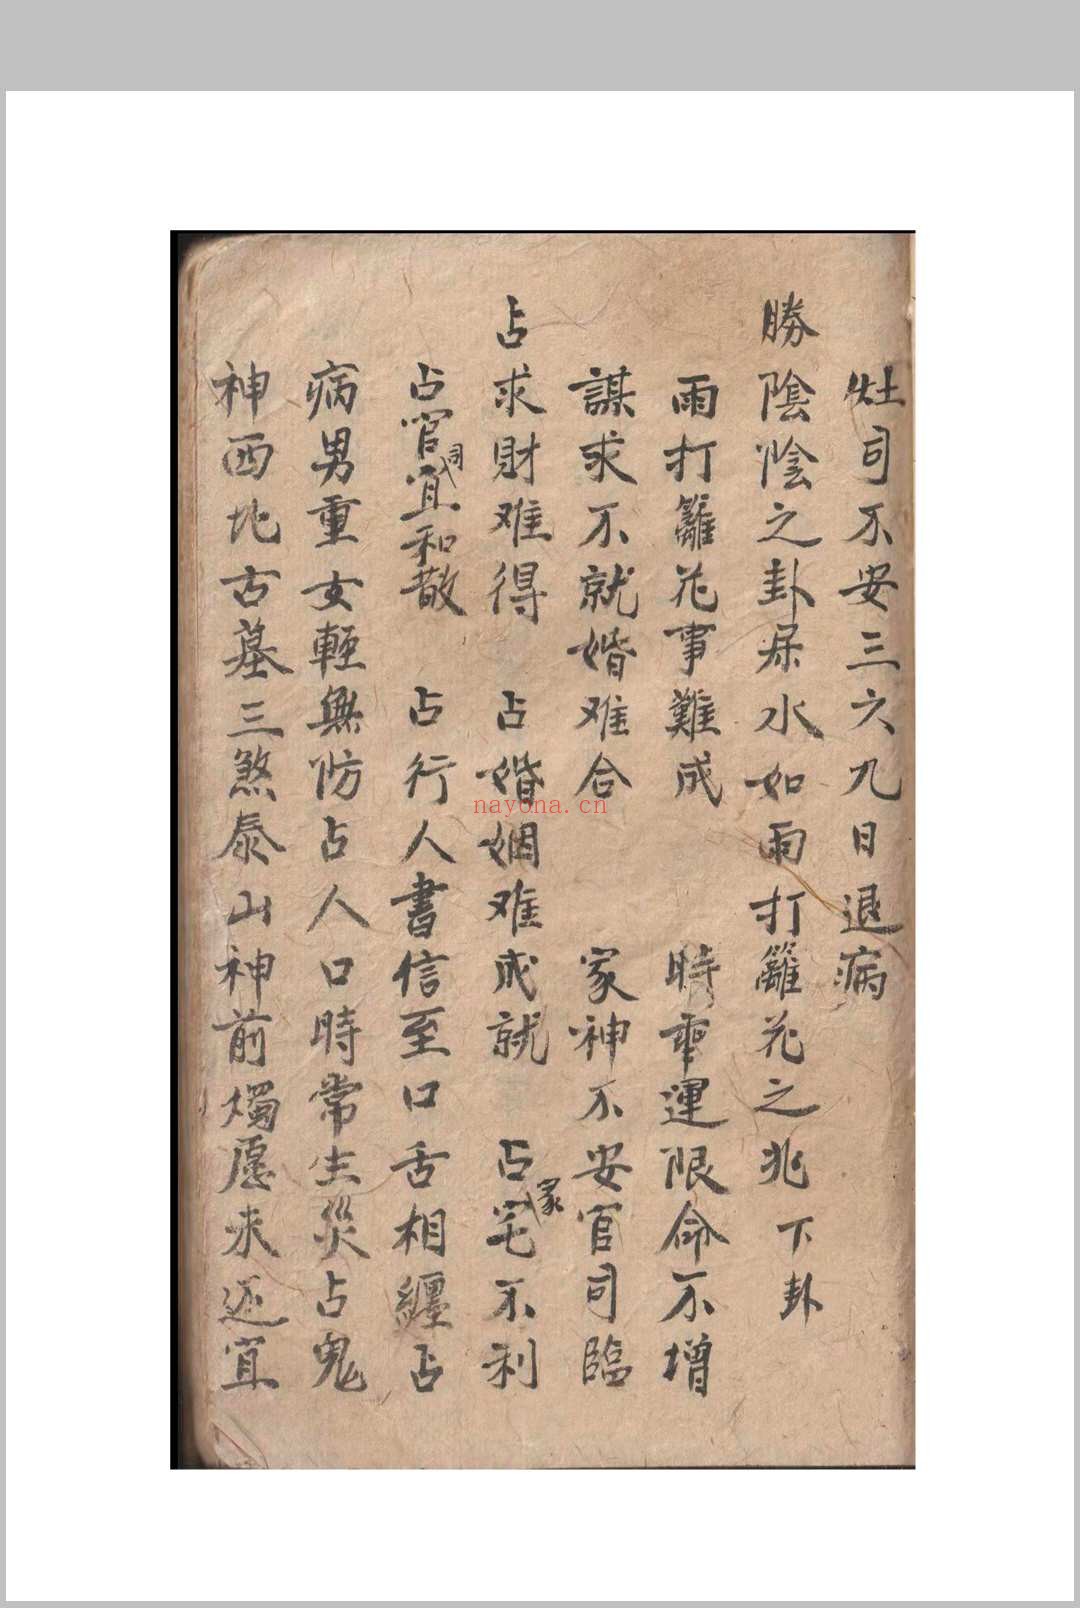 灶司不安三六九日退病
勝陰陰之卦屎水如雨打籬花之兆下卦
雨打籬花事難成 時車運限命不增
謀求不就婚难合 家神不安官司臨
占求財难得 占婚姻难成就 占家宅不利
占官司宜和散 占行人書信至口舌相纏占
病男重女輕無防占人口時常生災占鬼
神西北古墓三煞泰山神前燭愿未还宜
nayona.cn